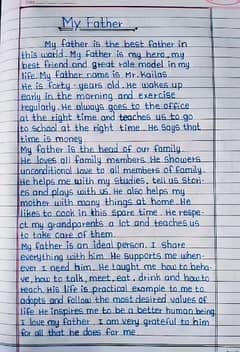 My Father
My father is the best father in
this world. My father is my hero, my
best friend and great role model in my
life. My father name is Mr. Kailas
He is forty-years old. He wakes up
early in the morning and exercise
regularly. He always goes to the office
at the right time and teaches us to go
to school at the right time. He says that
time is money.
My father is the head of our family.
He loves all family members. He showers
unconditional love to all members of family.
He helps me with my studies, tell us stori-
es and plays with us. He also helps my
mother with many things at home. He
likes to cook in this spare time. He respe-
ct my grandparents a lot and teaches us
to take care of them.
My father is an ideal person. I share
everything with him. He supports me when-
ever I need him. He taught me how to beha-
ve, how to talk, meet, eat, drink and how to
reach. His life is practical example to me to
adopts and follow the most desired values of
life. He inspires me to be a better human being.
I love my father. I am very grateful to him
for all that he does for me.